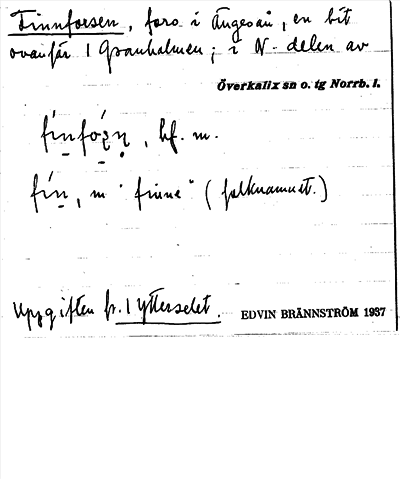 Finnforsen, fors i Ängesån, en bit
ovanför 1 Granholmen; i N. delen av
Överkalix sn o. tg Norrb. l.
, bf. m.
, m "finne" (folknamnet.)
Uppgiften fr. 1 Ytterselet.
EDVIN BRÄNNSTRÖM 1937